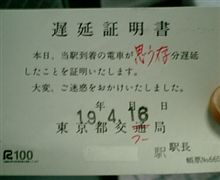 遅延証明書
本日、当駅到着の電車が思う存分遅延
したことを証明いたします。
大変、ご迷惑をおかけいたしました。
年 月 日
19.4.16
東京都交通局
駅 駅長
R100
帳票No660